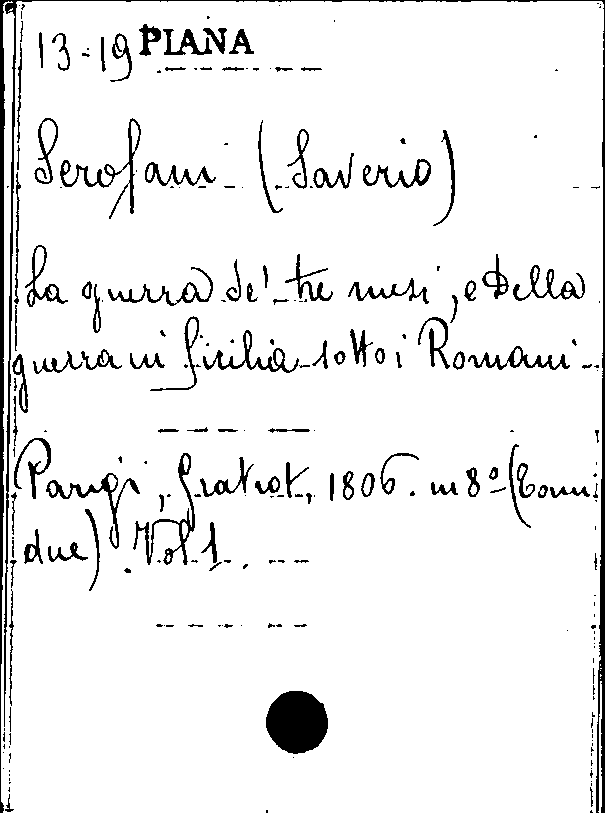 13-19 PIANA
Serofani (Saverio)
La guerra de' tre mesi, e della
guerra in Sicilia sotto i Romani
Parigi, Gratiot, 1806. in 8º (Tomi
due). Vol 1.